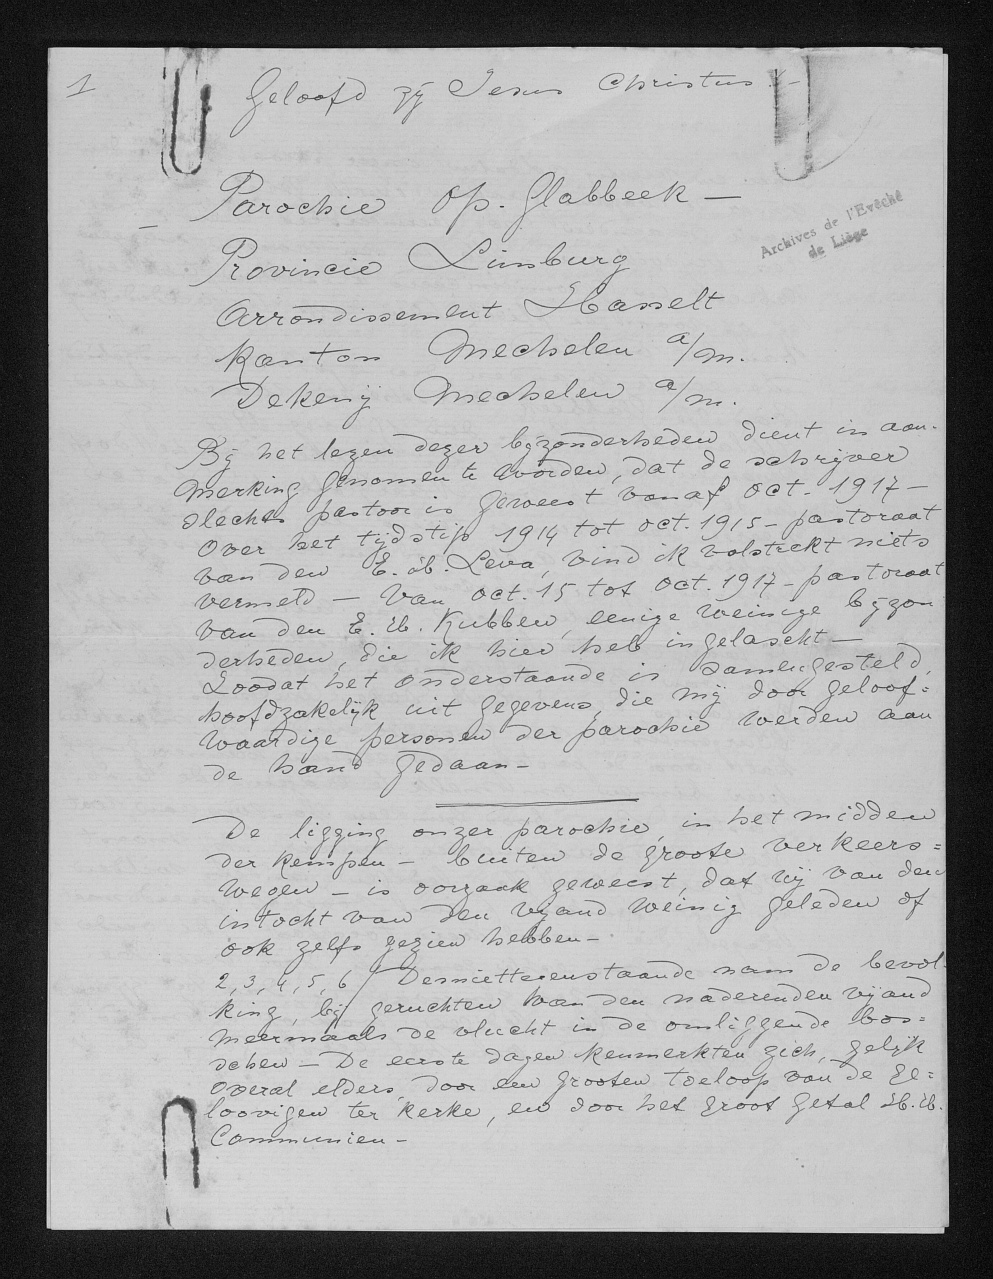 1
Geloofd zij Jesus Christus. -
Parochie Op. Glabbeek —
Archives de l'Evêché
de Liège
Provincie Limburg
Arrondissement Hasselt
Kanton Mechelen a/m.
Dekenij Mechelen a/m.
Bij het lezen dezer bijzonderheden dient in aan-
merking genomen te worden, dat de schrijver
slechts pastoor is geweest vanaf oct. 1917 —
Over het tijdstip 1914 tot oct. 1915 — pastoraat
van den E. H. Leva, vind ik volstrekt niets
vermeld — Van oct. 15 tot oct. 1917 — pastoraat
van den E. H. Kubben, eenige weinige bijzon
derheden, die ik hier heb ingelascht —
Zoodat het onderstaande is samengesteld,
hoofdzakelijk uit gegevens, die mij door geloof=
waardige personen der parochie werden aan
de hand gedaan —
De ligging onzer parochie, in het midden
der Kempen — buiten de groote verkeers=
wegen — is oorzaak geweest, dat wij van den
intocht van den vijand weinig geleden of
ook zelfs gezien hebben —
2, 3, 4, 5, 6 / Desniettegenstaande nam de bevol-
king, bij geruchten van den naderenden vijand
meermaals de vlucht in de omliggende bos=
schen — De eerste dagen kenmerkten zich, gelijk
overal elders, door een grooten toeloop van de ge=
loovigen ter kerke, en door het groot getal H. H.
Communien —